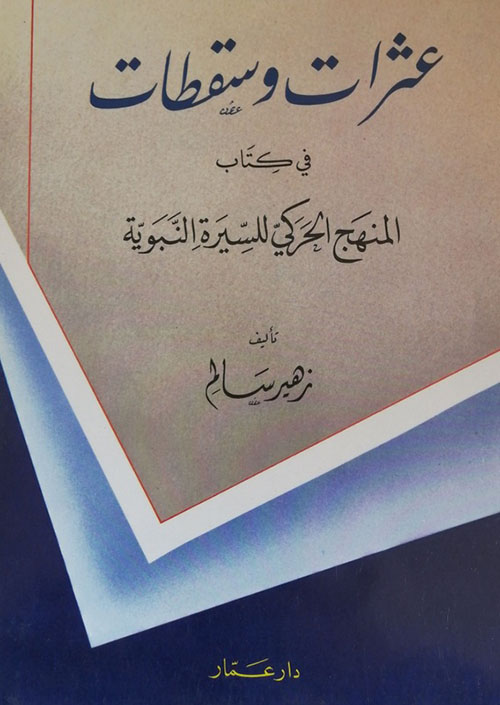 عثرات وسقطات
في كِتَاب
المنهَج الحَركيّ للسِّيرَة النَّبَويَّة
تأليف
زهير سَالم
دار عَمَّار